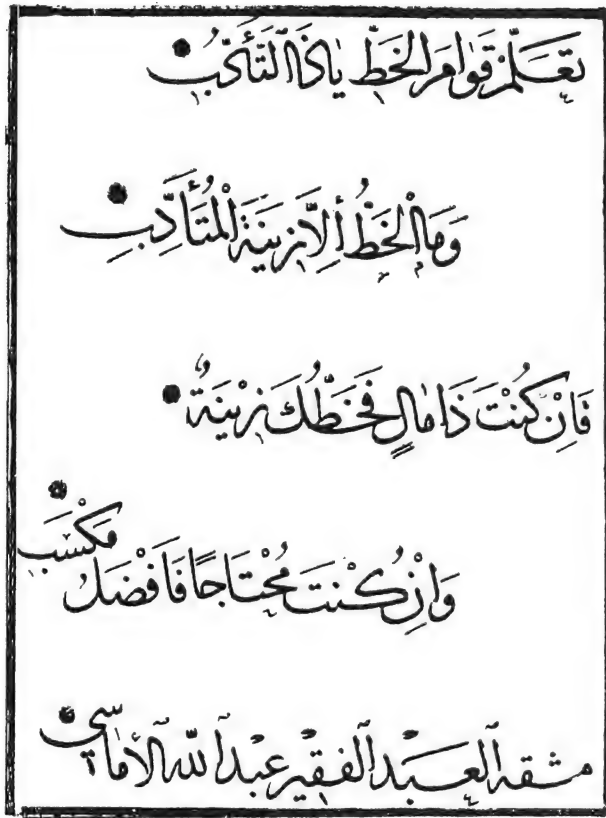 تَعَلَّمْ قَوَامَ الخَطِّ يَا ذَا التَّأَدُّبِ
وَمَا الْخَطُّ إِلَّا زِينَةُ الْمُتَأَدِّبِ
فَإِنْ كُنْتَ ذَا مَالٍ فَخَطُّكَ زِينَةٌ
وَإِنْ كُنْتَ مُحْتَاجًا فَأَفْضَلُ مَكْسَبِ
مشقه العبد الفقير عبد الله الأماسي